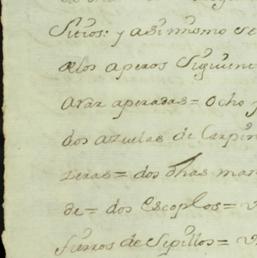 Sitios: y asi mismo se
delos aperos Siguien
arar aperadas = ocho y
dos azuelas de Carpin
teras = dos dhas man
de = dos Escoplos = v
fierros de Sepillos = v